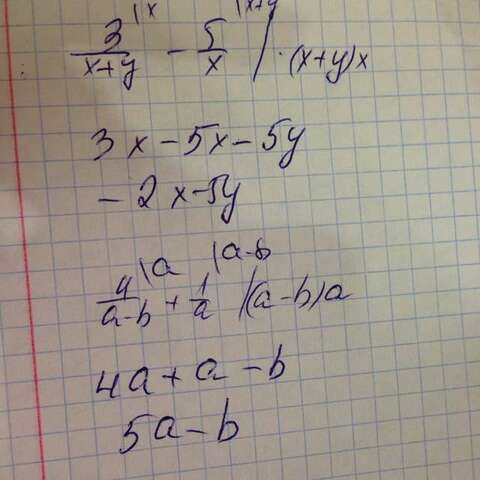 3/(x+y) |x - 5/x |x+y | ·(x+y)x
3x-5x-5y
-2x-5y
4/(a-b) |a + 1/a |a-b |(a-b)a
4a+a-b
5a-b